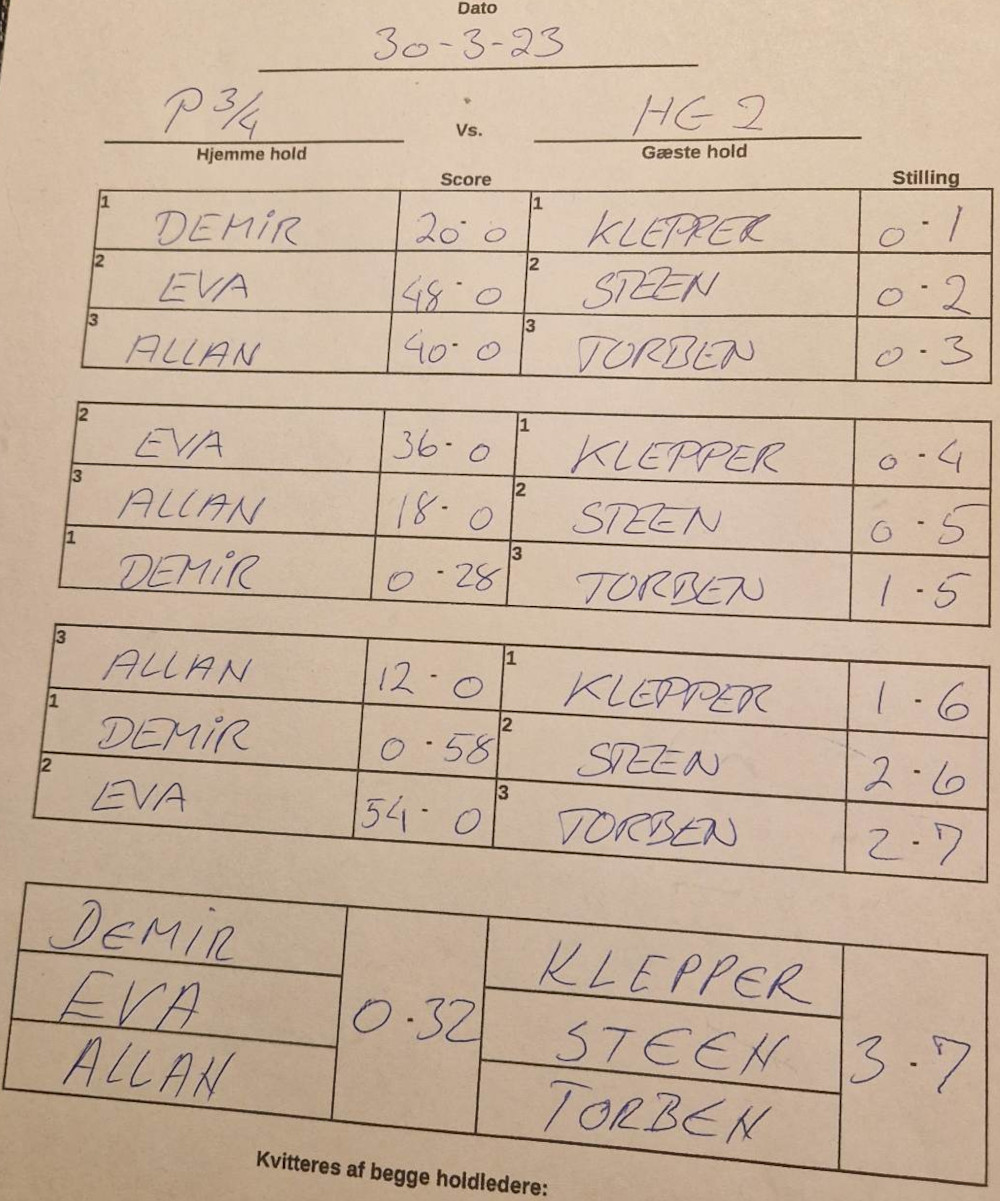 Dato
30-3-23
P 3/4 Vs. HG 2
Hjemme hold Gæste hold
Score Stilling
1 DEMIR 20-0 1 KLEPPER 0-1
2 EVA 48-0 2 STEEN 0-2
3 ALLAN 40-0 3 TORBEN 0-3
2 EVA 36-0 1 KLEPPER 0-4
3 ALLAN 18-0 2 STEEN 0-5
1 DEMIR 0-28 3 TORBEN 1-5
3 ALLAN 12-0 1 KLEPPER 1-6
1 DEMIR 0-58 2 STEEN 2-6
2 EVA 54-0 3 TORBEN 2-7
DEMIR KLEPPER
EVA 0-32 STEEN 3-7
ALLAN TORBEN
Kvitteres af begge holdledere: